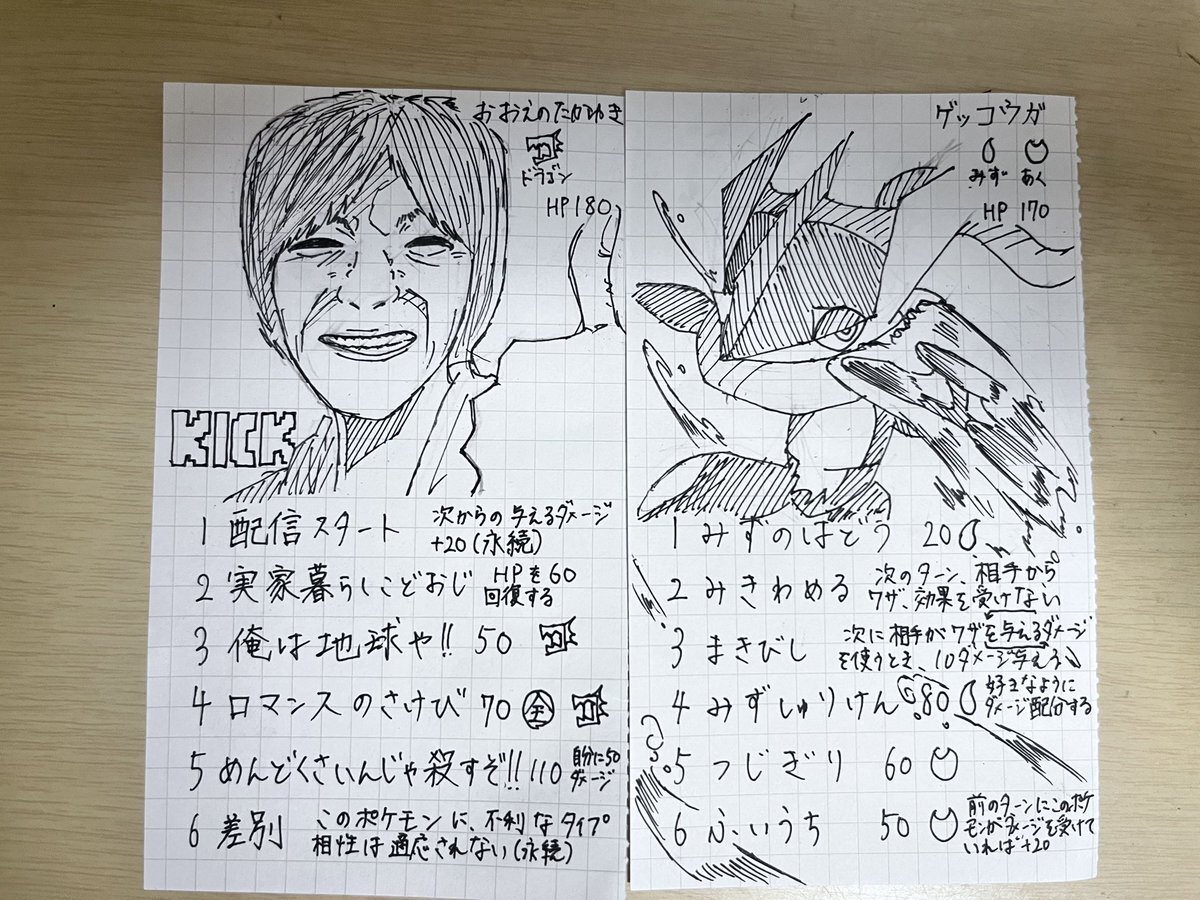 おおえのたかゆき
ドラゴン
HP180
KICK
1 配信スタート 次からの与えるダメージ
+20(永続)
2 実家暮らしこどおじ HPを60
回復する
3 俺は地球や!! 50
4 ロマンスのさけび 70 全
5 めんどくさいんじゃ殺すぞ!! 110 自分に50
ダメージ
6 差別 このポケモンに、不利なタイプ
相性は適応されない(永続)
ゲッコウガ
みず あく
HP 170
1 みずのはどう 20
2 みきわめる 次のターン、相手から
ワザ、効果を受けない
3 まきびし 次に相手がワザを与えるダメージ
を使うとき、10ダメージ与える
4 みずしゅりけん 80 好きなように
ダメージ配分する
5 つじぎり 60
6 ふいうち 50 前のターンにこのポケ
モンがダメージを受けて
いれば+20